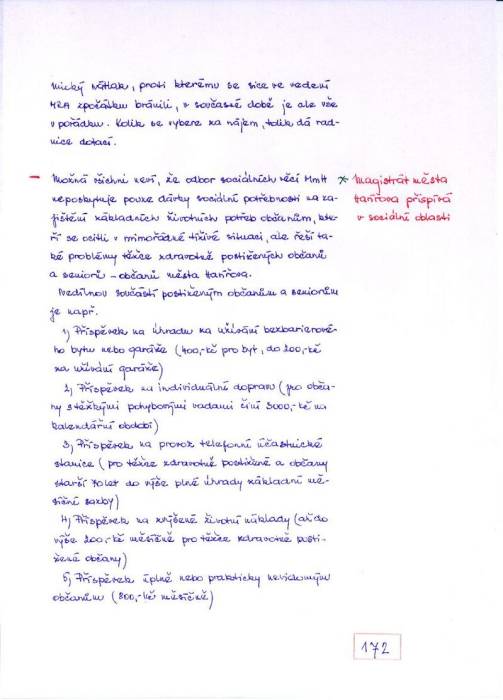 mický nátlak, proti kterému se sice ve vedení
MRA zpočátku bránili, v současné době je ale vše
v pořádku. Kolik se vybere za nájem, tolik dá rad-
nice dotací.
– Možná všichni neví, že odbor sociálních věcí MmH
neposkytuje pouze dávky sociální potřebnosti na za-
jištění základních životních potřeb občanům, kte-
ří se ocitli v mimořádně tíživé situaci, ale řeší ta-
ké problémy těžce zdravotně postižených občanů
a seniorů – občanů města Havířova.
Nedílnou součástí postiženým občanům a seniorům
je např.
1) Příspěvek na úhradu za užívání bezbarierové-
ho bytu nebo garáže (400,-kč pro byt, do 200,-kč
za užívání garáže)
2) Příspěvek na individuální dopravu (pro obča-
ny s těžkými pohybovými vadami činí 3000,-kč na
kalendářní období)
3) Příspěvek na provoz telefonní účastnické
stanice (pro těžce zdravotně postižené a občany
starší 70 let do výše plné úhrady základní mě-
síční sazby)
4) Příspěvek na zvýšené životní náklady (až do
výše 200,-kč měsíčně pro těžce zdravotně posti-
žené občany)
5) Příspěvek úplně nebo prakticky nevidomým
občanům (800,-kč měsíčně)
* Magistrát města
Havířova přispívá
v sociální oblasti
172